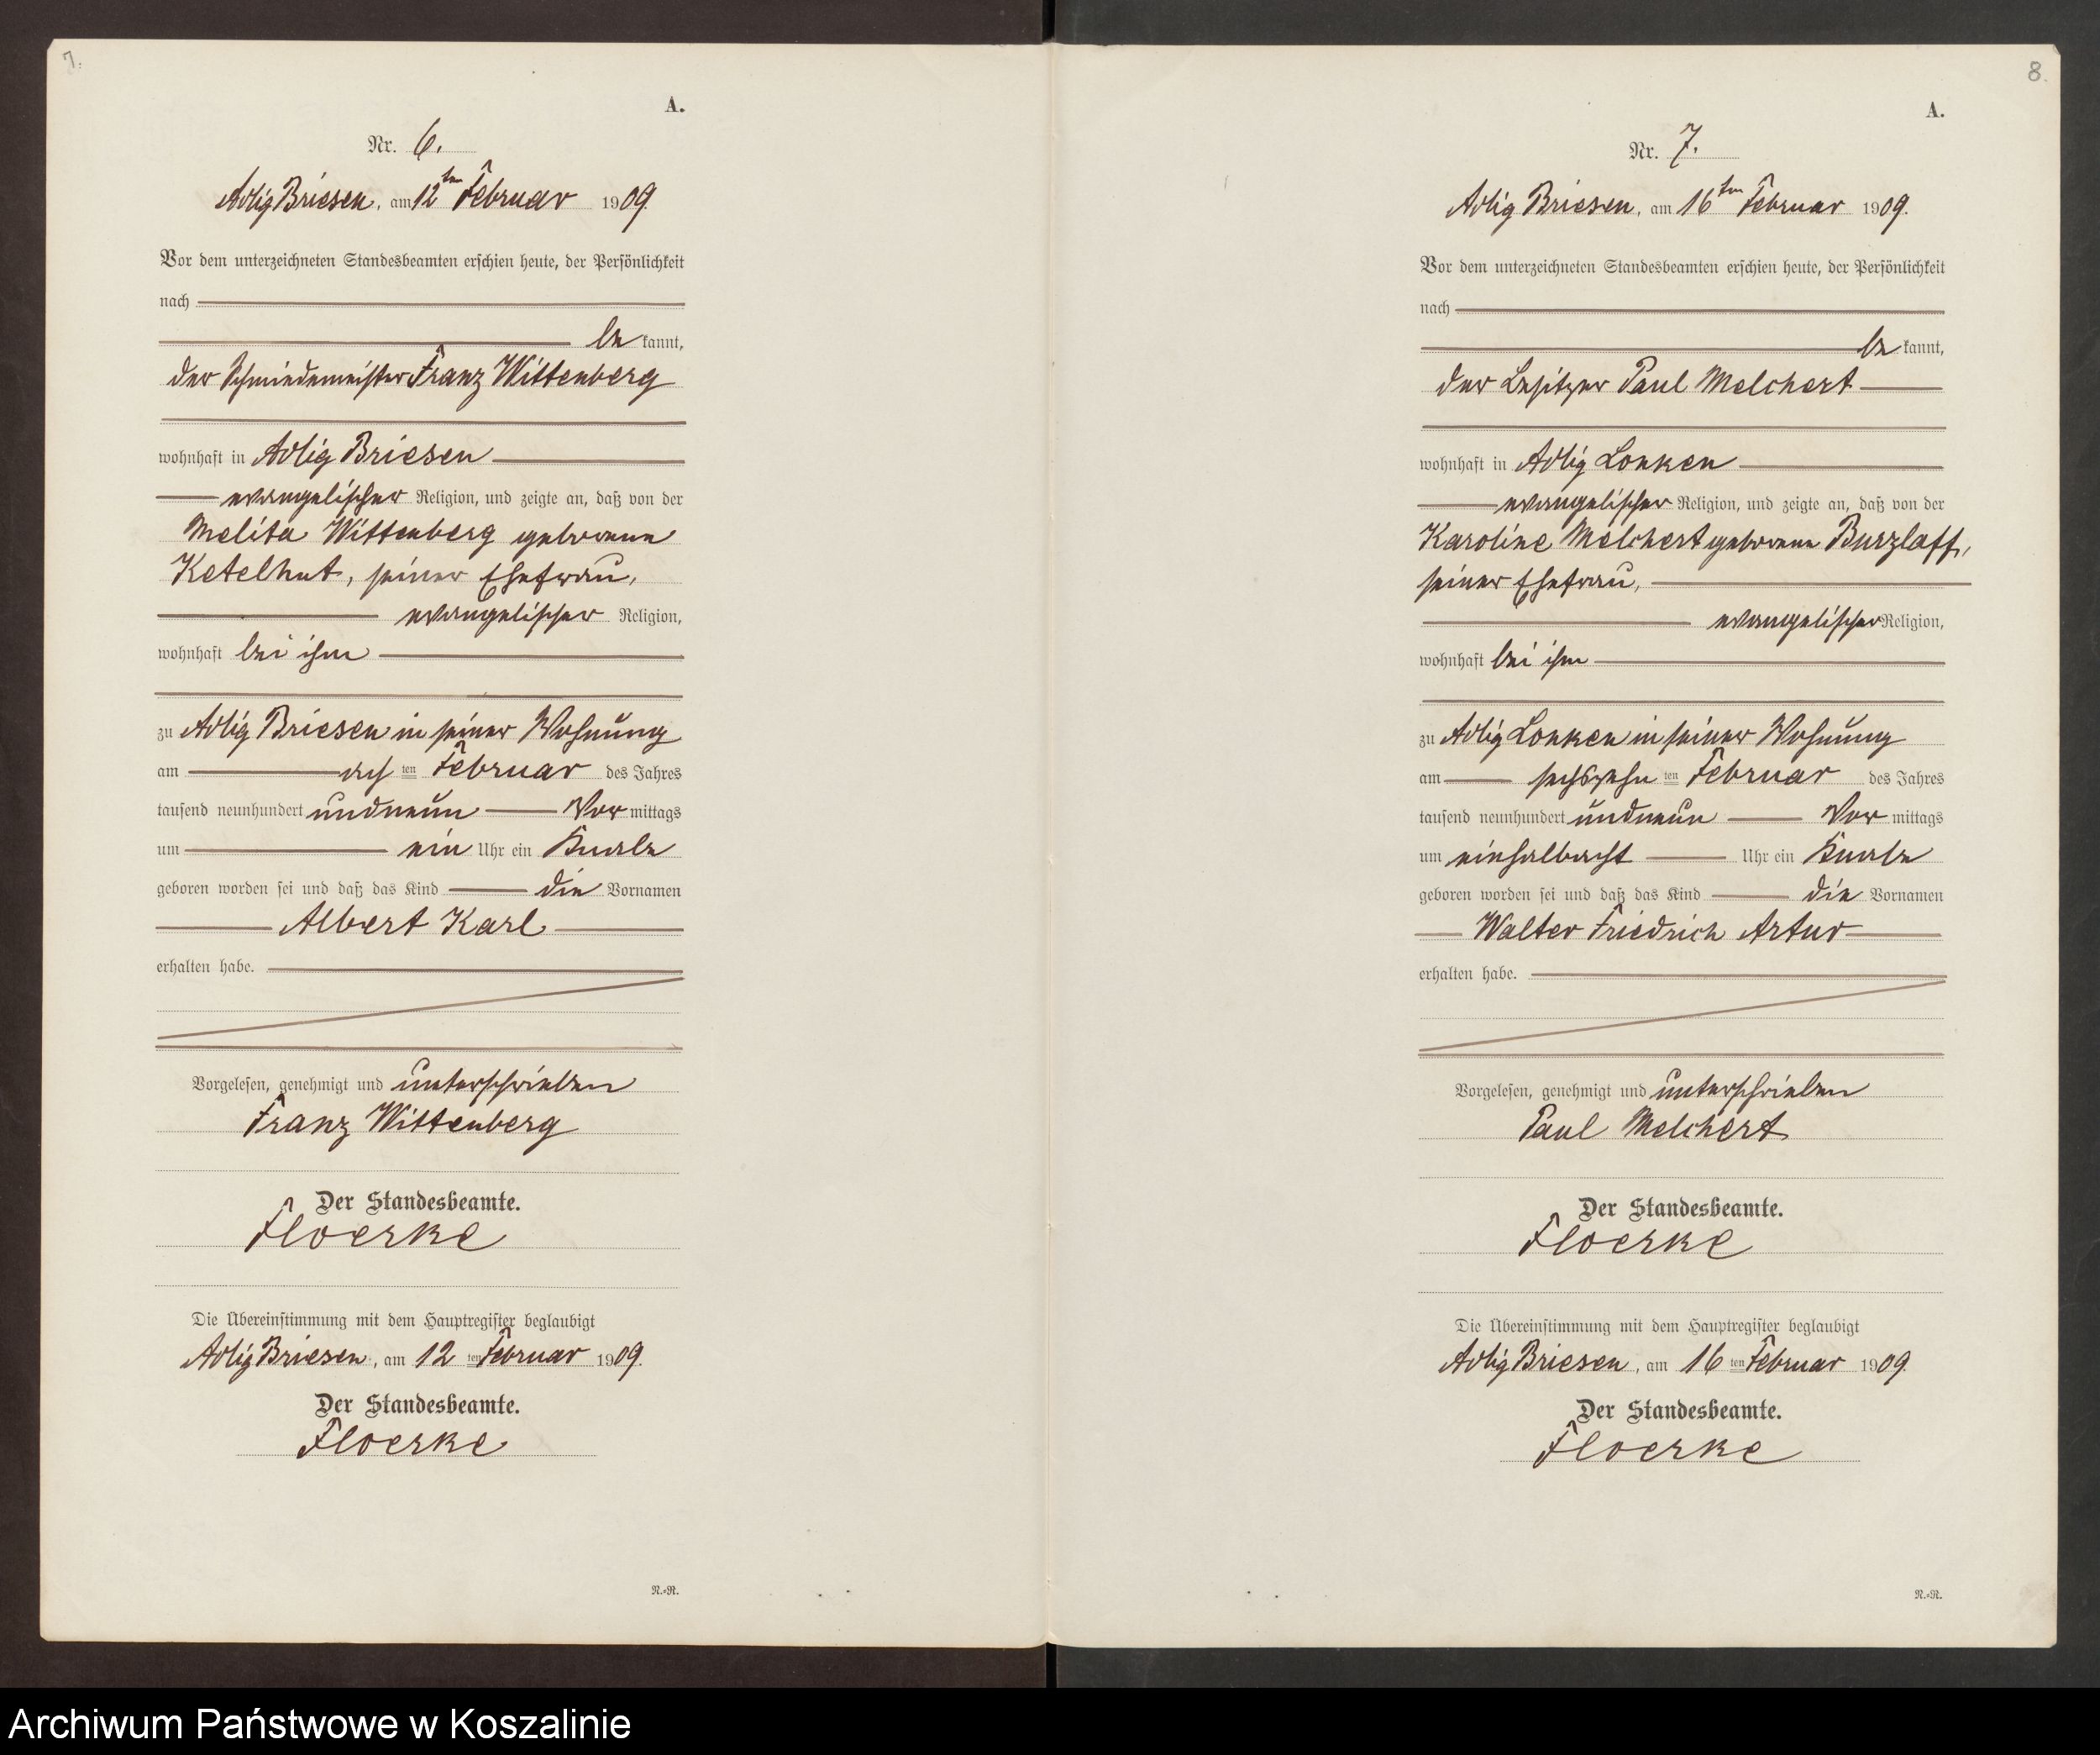 7.
A.
Nr. 6.
Adlig Briesen, am 12ten Februar 1909.
Vor dem unterzeichneten Standesbeamten erschien heute, der Persönlichkeit
nach
be kannt,
der Schmiedemeister Franz Wittenberg
wohnhaft in Adlig Briesen
evangelischer Religion, und zeigte an, daß von der
Melita Wittenberg geborene
Ketelhut, seiner Ehefrau,
evangelischer Religion,
wohnhaft bei ihm
zu Adlig Briesen in seiner Wohnung
am acht ten Februar des Jahres
tausend neunhundert undneun Vor mittags
um ein Uhr ein Knabe
geboren worden sei und daß das Kind die Vornamen
Albert Karl
erhalten habe.
Vorgelesen, genehmigt und unterschrieben
Franz Wittenberg
Der Standesbeamte.
Floerke
Die Übereinstimmung mit dem Hauptregister beglaubigt
Adlig Briesen, am 12 ten Februar 1909.
Der Standesbeamte.
Floerke
R.=R.
8.
A.
Nr. 7.
Adlig Briesen, am 16ten Februar 1909.
Vor dem unterzeichneten Standesbeamten erschien heute, der Persönlichkeit
nach
be kannt,
der Besitzer Paul Melchert
wohnhaft in Adlig Lonken
evangelischer Religion, und zeigte an, daß von der
Karoline Melchert geborene Burzlaff,
seiner Ehefrau,
evangelischer Religion,
wohnhaft bei ihm
zu Adlig Lonken in seiner Wohnung
am sechszehn ten Februar des Jahres
tausend neunhundert undneun Vor mittags
um einhalbacht Uhr ein Knabe
geboren worden sei und daß das Kind die Vornamen
Walter Friedrich Artur
erhalten habe.
Vorgelesen, genehmigt und unterschrieben
Paul Melchert
Der Standesbeamte.
Floerke
Die Übereinstimmung mit dem Hauptregister beglaubigt
Adlig Briesen, am 16 ten Februar 1909.
Der Standesbeamte.
Floerke
R.=R.
Archiwum Państwowe w Koszalinie